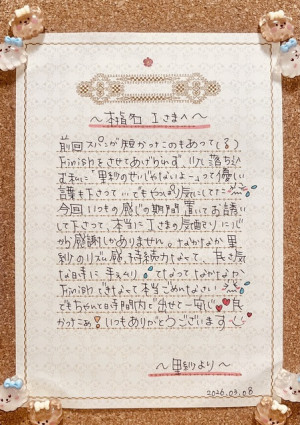 〜椎名 Iさまへ〜
前回スパンが短かったのもあって(る)
Finishをさせてあげられず、少し落ち込
む私に"里紗のせいじゃないよ〜"って優しい
言葉を下さって…でもやっぱり気にしてた
今回いつもの感じの期間置いてお誘い
して下さって、本当にIさまの気遣い
感謝しかありません。なかなか里
紗のリズム感、持続力なくて、長
な日手に
Finishできなくて本当ごめんなさい
できちゃんと時間内で出せて一安心
かったぁ いつもありがとうございます
〜里紗より〜
2026.03.08